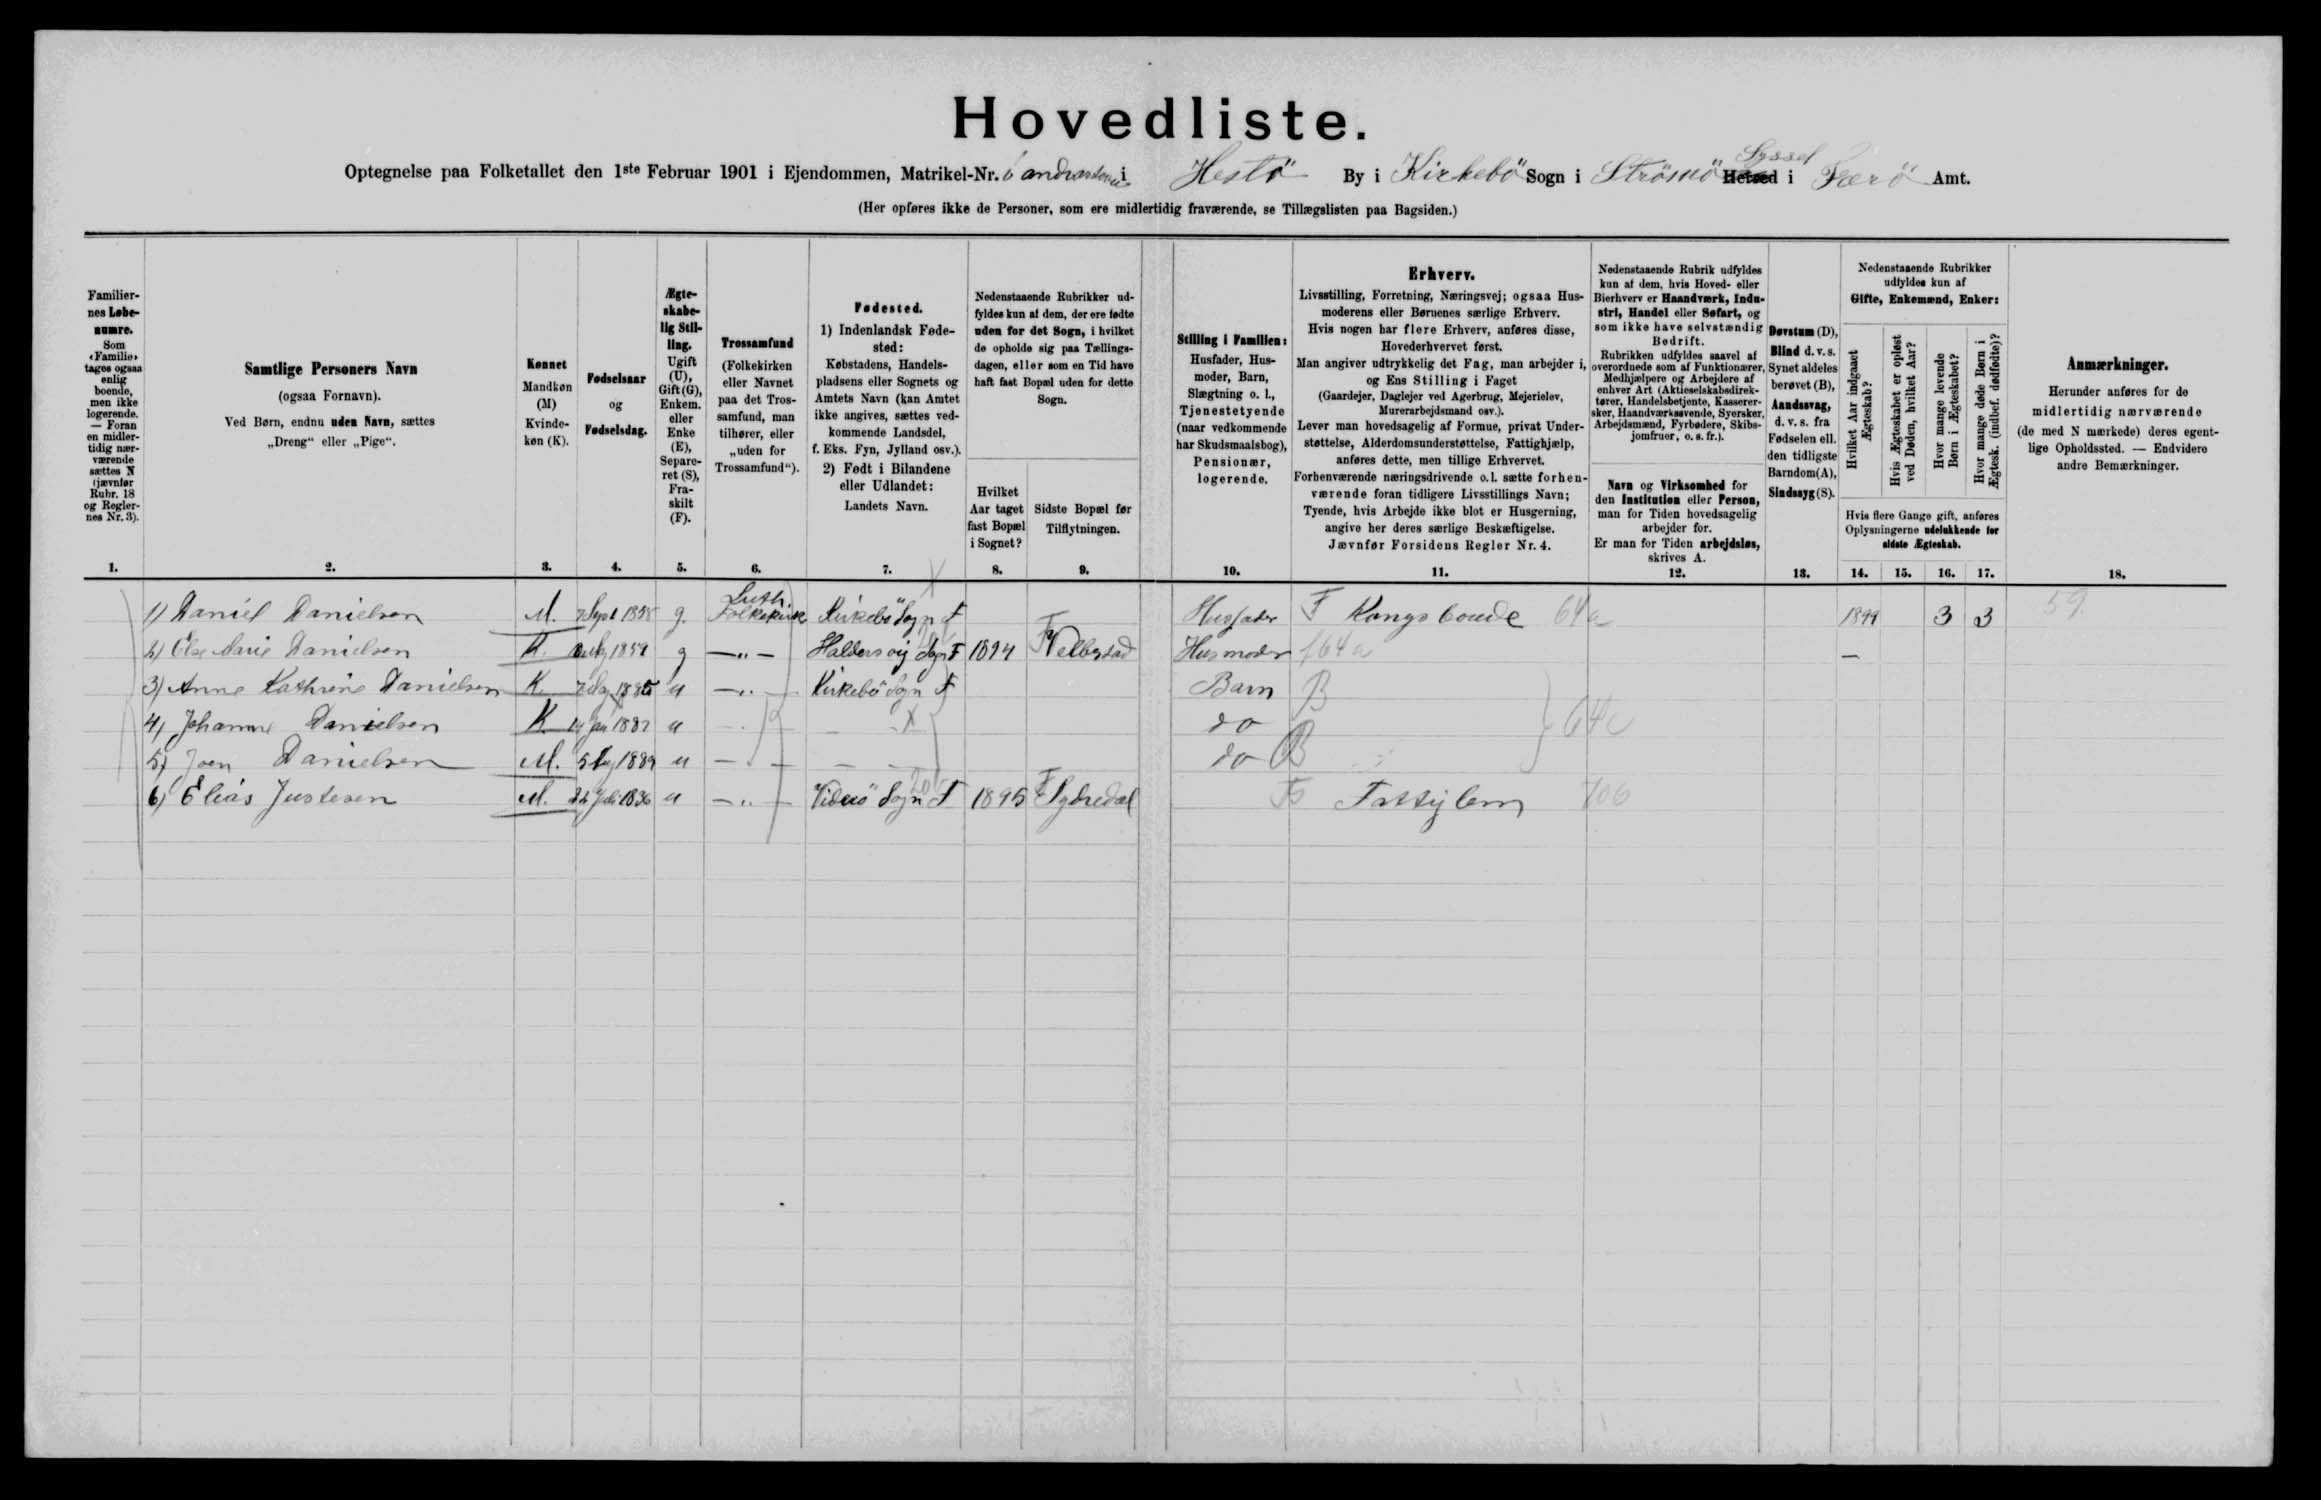 Hovedliste.
Optegnelse paa Folketallet den 1ste Februar 1901 i Ejendommen, Matrikel-Nr. i Hestö By i Kirkebö Sogn i Strömö Syssel Herred i Færö Amt.
(Her opføres ikke de Personer, som ere midlertidig fraværende, se Tillægslisten paa Bagsiden.)
Familier-
nes Løbe-
numre.
Som
«Familie»
tages ogsaa
enlig
boende,
men ikke
logerende.
— Foran
en midler-
tidig nær-
værende
sættes N
(jævnfør
Rubr. 18
og Regler-
nes Nr. 3).
1.
Samtlige Personers Navn
(ogsaa Fornavn).
Ved Børn, endnu uden Navn, sættes
„Dreng“ eller „Pige“.
2.
Kønnet
Mandkøn
(M)
Kvinde-
køn (K).
3.
Fødselsaar
og
Fødselsdag.
4.
Ægte-
skabe-
lig Stil-
ling.
Ugift
(U),
Gift (G),
Enkem.
eller
Enke
(E),
Separe-
ret (S),
Fra-
skilt
(F).
5.
Trossamfund
(Folkekirken
eller Navnet
paa det Tros-
samfund, man
tilhører, eller
„uden for
Trossamfund“).
6.
Fødested.
1) Indenlandsk Føde-
sted:
Købstadens, Handels-
pladsens eller Sognets og
Amtets Navn (kan Amtet
ikke angives, sættes ved-
kommende Landsdel,
f. Eks. Fyn, Jylland osv.).
2) Født i Bilandene
eller Udlandet:
Landets Navn.
7.
Nedenstaaende Rubrikker ud-
fyldes kun af dem, der ere fødte
uden for det Sogn, i hvilket
de opholde sig paa Tællings-
dagen, eller som en Tid have
haft fast Bopæl uden for dette
Sogn.
Hvilket
Aar taget
fast Bopæl
i Sognet?
8.
Sidste Bopæl før
Tilflytningen.
9.
Stilling i Familien:
Husfader, Hus-
moder, Barn,
Slægtning o. l.,
Tjenestetyende
(naar vedkommende
har Skudsmaalsbog),
Pensionær,
logerende.
10.
Erhverv.
Livsstilling, Forretning, Næringsvej; ogsaa Hus-
moderens eller Børnenes særlige Erhverv.
Hvis nogen har flere Erhverv, anføres disse,
Hovederhvervet først.
Man angiver udtrykkelig det Fag, man arbejder i,
og Ens Stilling i Faget
(Gaardejer, Daglejer ved Agerbrug, Mejerielev,
Murerarbejdsmand osv.).
Lever man hovedsagelig af Formue, privat Under-
støttelse, Alderdomsunderstøttelse, Fattighjælp,
anføres dette, men tillige Erhvervet.
Forhenværende næringsdrivende o. l. sætte forhen-
værende foran tidligere Livsstillings Navn;
Tyende, hvis Arbejde ikke blot er Husgerning,
angive her deres særlige Beskæftigelse.
Jævnfør Forsidens Regler Nr. 4.
11.
Nedenstaaende Rubrik udfyldes
kun af dem, hvis Hoved- eller
Bierhverv er Haandværk, Indu-
stri, Handel eller Søfart, og
som ikke have selvstændig
Bedrift.
Rubrikken udfyldes saavel af
overordnede som af Funktionærer,
Medhjælpere og Arbejdere af
enhver Art (Aktieselskabsdirek-
tører, Handelsbetjente, Kasserer-
sker, Haandværkssvende, Syersker,
Arbejdsmænd, Fyrbødere, Skibs-
jomfruer, o. s. fr.).
Navn og Virksomhed for
den Institution eller Person,
man for Tiden hovedsagelig
arbejder for.
Er man for Tiden arbejdsløs,
skrives A.
12.
Døvstum (D),
Blind d. v. s.
Synet aldeles
berøvet (B),
Aandssvag,
d. v. s. fra
Fødselen ell.
den tidligste
Barndom (A),
Sindssyg (S).
13.
Nedenstaaende Rubrikker
udfyldes kun af
Gifte, Enkemænd, Enker:
Hvilket Aar indgaaet
Ægteskab?
Hvis Ægteskabet er opløst
ved Døden, hvilket Aar?
Hvor mange levende
Børn i Ægteskabet?
Hvor mange døde Børn i
Ægtesk. (indbef. dødfødte)?
Hvis flere Gange gift, anføres
Oplysningerne udelukkende for
sidste Ægteskab.
14. 15. 16. 17.
Anmærkninger.
Herunder anføres for de
midlertidig nærværende
(de med N mærkede) deres egent-
lige Opholdssted. — Endvidere
andre Bemærkninger.
18.
1) Daniel Danielsen M. 7 Sept 1858 g. Luth. Folkekirke Kirkebö Sogn F Husfader F Kongsbonde 64a 3 3 59.
2) Else Marie Danielsen K. 1859 g —„— Haldersvig Sogn F 1894 Velbestad Husmoder f 64a —
3) Anne Kathrine Danielsen K. 1885 u —„— Kirkebö Sogn F Barn B
4) Johanne Danielsen K. 14 Jan 1887 u do
5) Joen Danielsen M. 5 1889 u do B
6) Elias Justesen M. 1836 u —„— Viderö Sogn F 1895 Sydredal Fattiglem